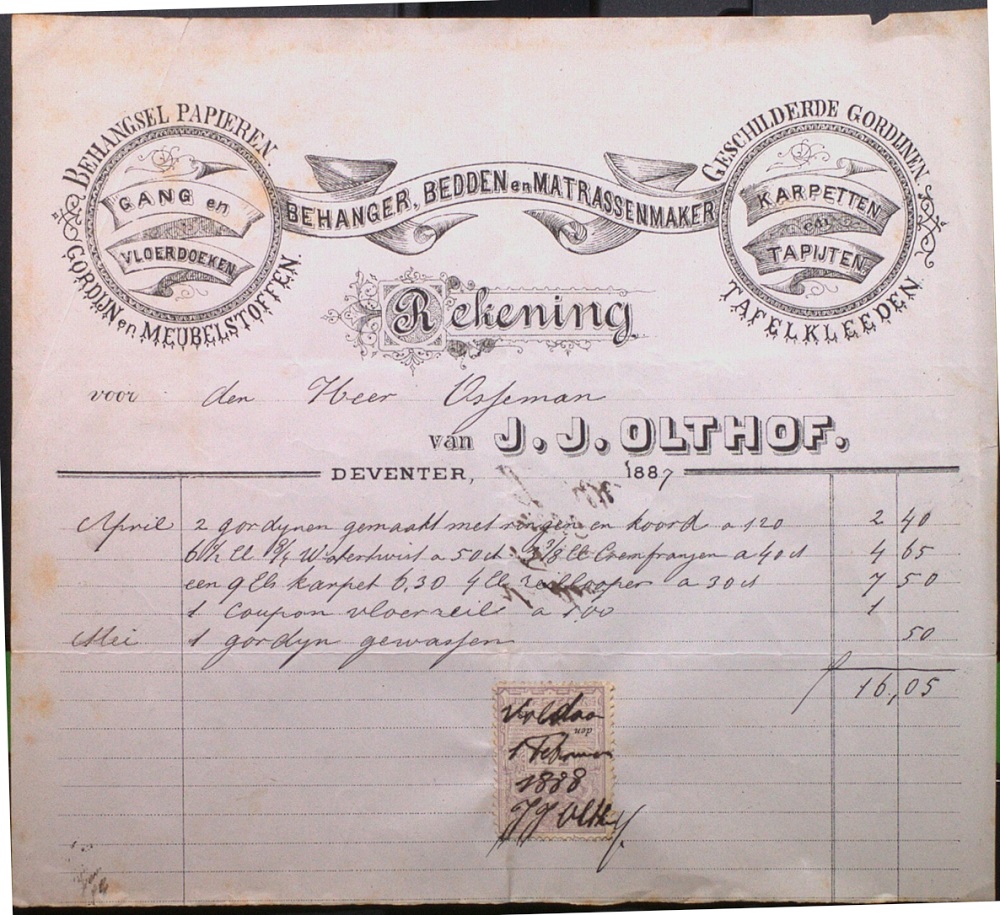 BEHANGSEL PAPIEREN
GANG en
VLOERDOEKEN
GORDIJN en MEUBELSTOFFEN.
BEHANGER, BEDDEN en MATRASSENMAKER
GESCHILDERDE GORDIJNEN
KARPETTEN
en
TAPIJTEN
TAFELKLEEDEN
Rekening
voor den Heer Osseman
van J. J. OLTHOF.
DEVENTER, 1887
April 2 gordynen gemaakt met ringen en koord a 120 2 40
6½ El 8/4 Watertwist a 50 ct El a 40 ct 4 65
een 9 Els karpet 6,30 4 El a 30 ct 7 50
1 Coupon vloerzeil a 100 1
Mei 1 gordyn gewassen 50
16,05
Voldaan
den
1 Februari
1888
JJ Olthof